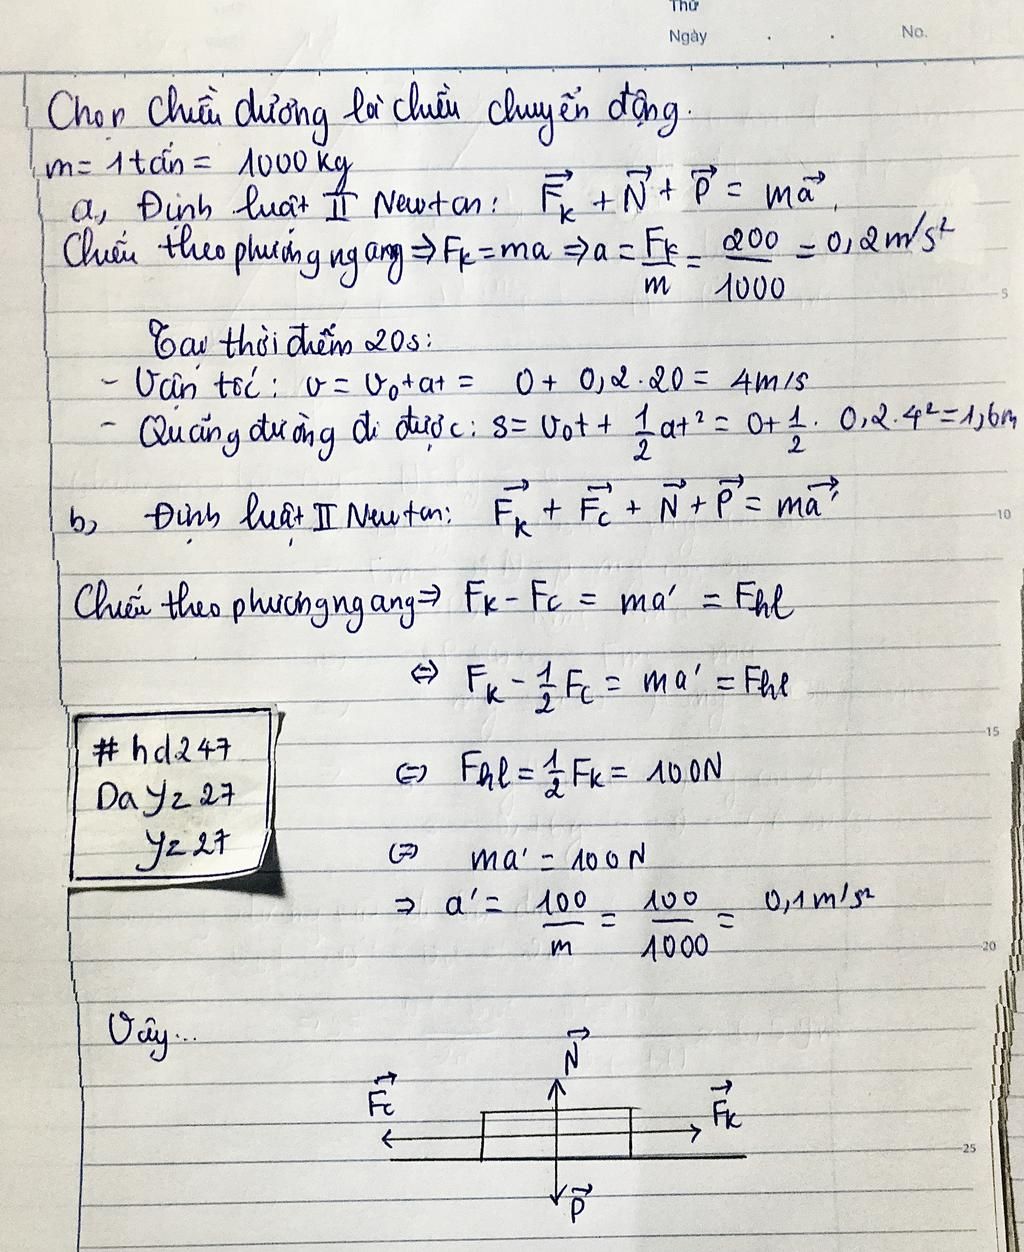 Thứ
Ngày . . No.
Chọn chiều dương là chiều chuyển động.
m = 1 tấn = 1000 kg
a, Định luật II Newton: F⃗k + N⃗ + P⃗ = ma⃗
Chiếu theo phương ngang ⇒ Fk = ma ⇒ a = Fk/m = 200/1000 = 0,2 m/s²
5
Tại thời điểm 20s:
- Vận tốc: v = v₀ + at = 0 + 0,2 . 20 = 4 m/s
- Quãng đường đi được: s = v₀t + 1/2 at² = 0 + 1/2 . 0,2 . 4² = 1,6m
b, Định luật II Newton: F⃗k + F⃗c + N⃗ + P⃗ = ma⃗'
10
Chiếu theo phương ngang ⇒ Fk - Fc = ma' = Fhl
⇔ Fk - 1/2 Fc = ma' = Fhl
15
#hd247
DaYz27
Yz27
⇔ Fhl = 1/2 Fk = 100N
⇔ ma' = 100N
⇒ a' = 100/m = 100/1000 = 0,1 m/s²
20
Vậy...
N⃗
F⃗c
F⃗k
25
P⃗